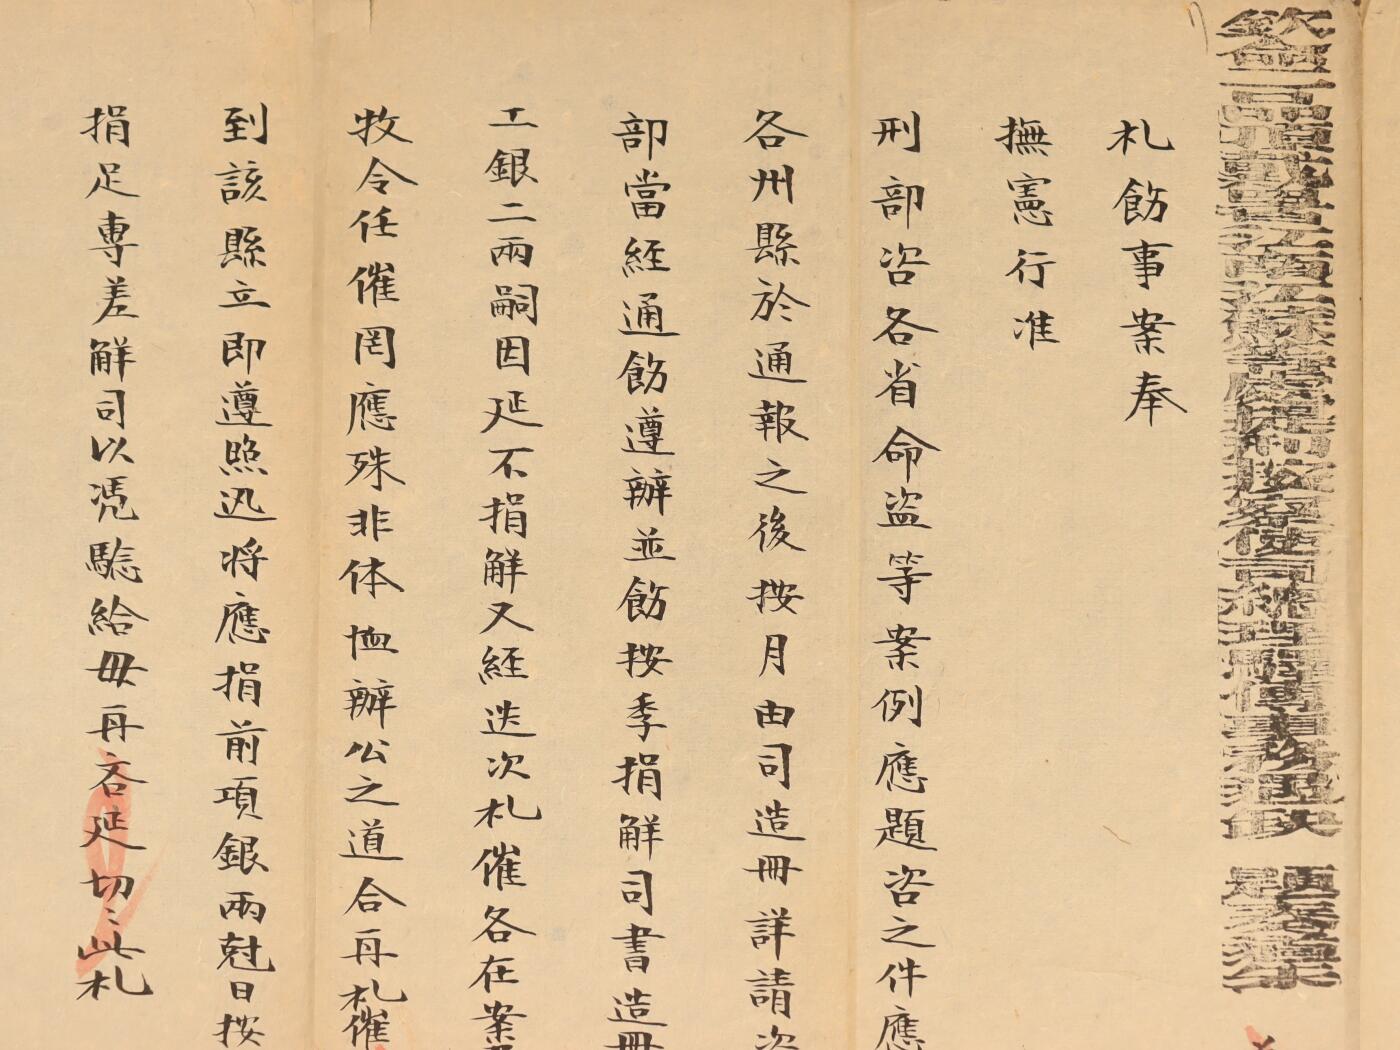 欽命二品頂戴署江南江蘇等處提刑按察使司總理驛傳事務溫
札飭事案奉
撫憲行准
刑部咨各省命盜等案例應題咨之件應
各州縣於通報之後按月由司造冊詳請咨
部當經通飭遵辦並飭按季捐解司書造冊
工銀二兩嗣因延不捐解又經迭次札催各在案
牧令任催罔應殊非体恤辦公之道合再札催
到該縣立即遵照迅將應捐前項銀兩尅日按
捐足專差解司以凴騐給毋再吝延切〻此札